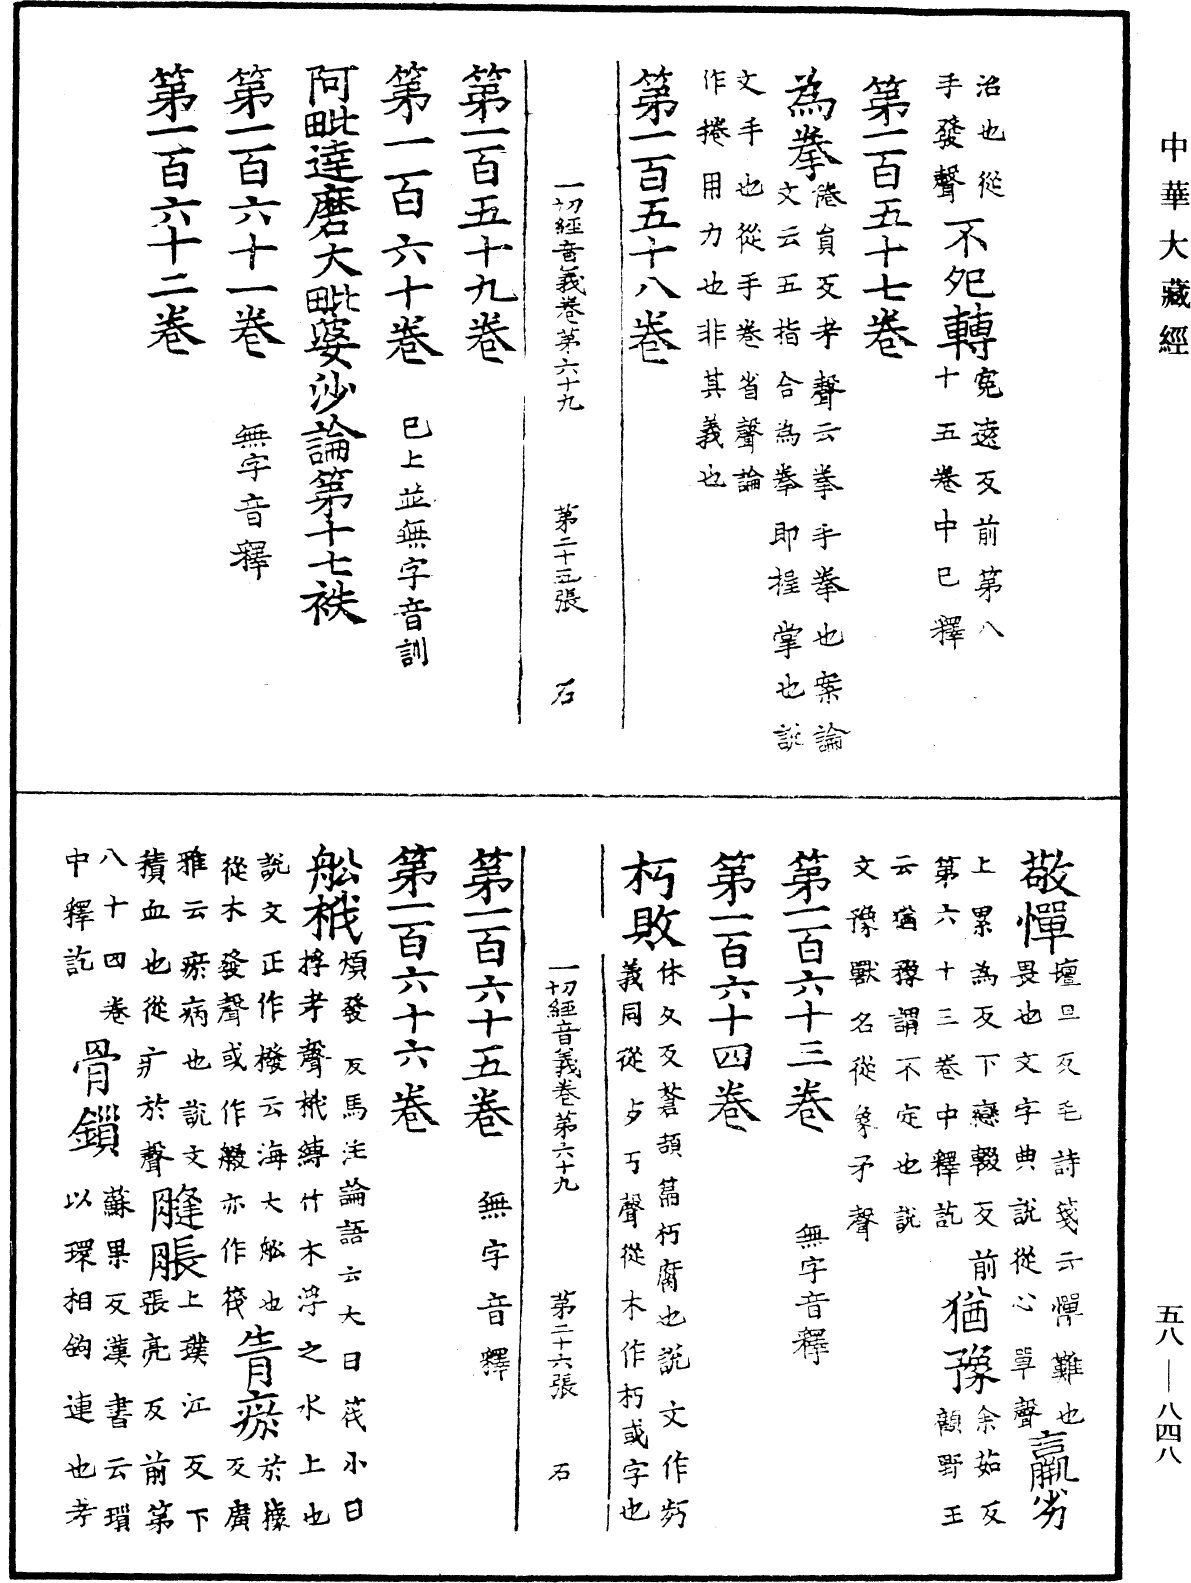 中華大藏經
治也從
手發聲
不死轉
冤遠反前第八
十五卷中已釋
第一百五十七卷
為拳
倦員反考聲云拳手拳也案論
文云五指合為拳即捏掌也說
文手也從手卷省聲論
作捲用力也非其義也
第一百五十八卷
一切經音義卷第六十九 第二十五張 石
第一百五十九卷
第一百六十卷 已上並無字音訓
阿毗達磨大毗婆沙論第十七袟
第一百六十一卷 無字音釋
第一百六十二卷
敬憚
壇旦反毛詩箋云憚難也
畏也文字典說從心單聲
羸劣
上累為反下戀輟反前
第六十三卷中釋訖
猶豫
余茹反
顧野王
云猶豫謂不定也說
文豫獸名從象矛聲
第一百六十三卷 無字音釋
第一百六十四卷
朽敗
休久反蒼頡篇朽腐也說文作㱙
義同從歺丂聲從木作朽或字也
一切經音義卷第六十九 第二十六張 石
第一百六十五卷 無字音釋
第一百六十六卷
舩栰
煩發反馬注論語云大曰筏小曰
桴考聲栰縛竹木浮之水上也
說文正作橃云海大舩也
從木發聲或作𦪑亦作筏
青瘀
於據
反廣
雅云瘀病也說文
積血也從疒於聲
膖脹
上璞江反下
張亮反前第
八十四卷
中釋訖
骨鎖
蘇果反漢書云瑣
以環相鉤連也考
五八—八四八